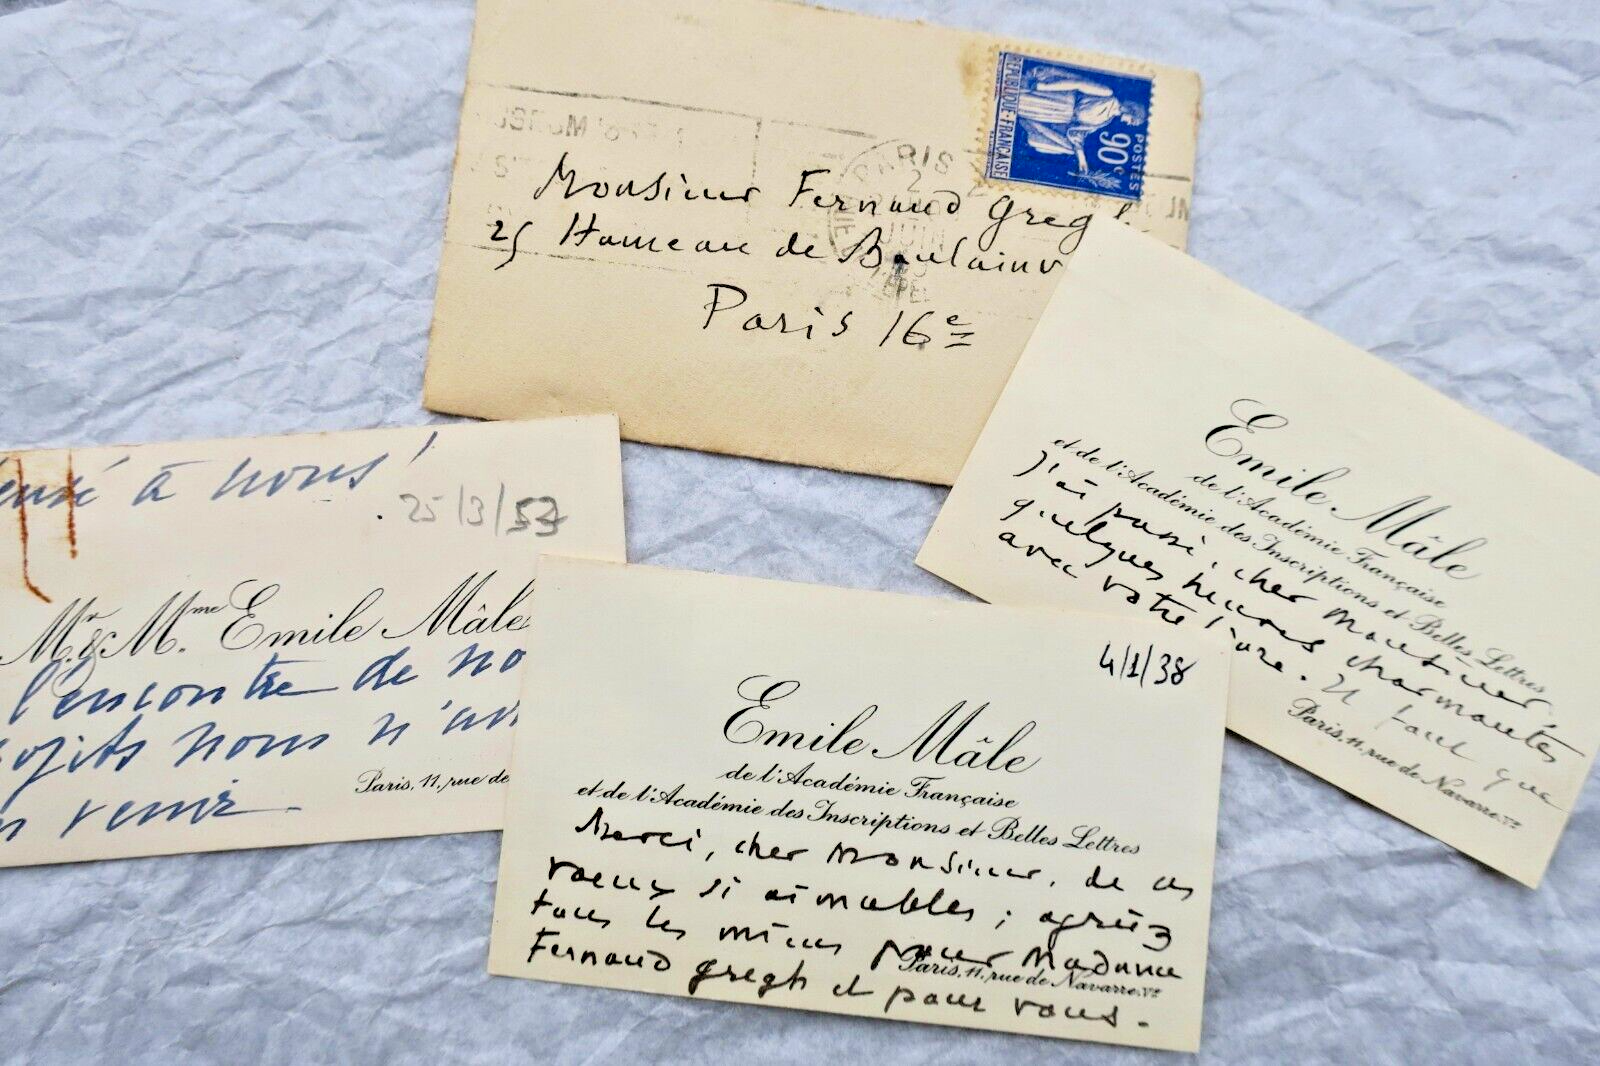 RÉPUBLIQUE-FRANÇAISE
90c
POSTES
PARIS
2
JUIN
Monsieur Fernand Gregh
25 Hameau de Boulainv
Paris 16e
Emile Mâle
de l'Académie Française
et de l'Académie des Inscriptions et Belles Lettres
J'ai passé, cher Monsieur,
quelques heures charmantes
avec votre livre. Il faut que
Paris, 11, rue de Navarre. Ve
à nous!
25/3/53
Mr & Mme Emile Mâle
l'encontre de no
ojets nous n'av
venir.
Paris, 11, rue de
4/1/38
Emile Mâle
de l'Académie Française
et de l'Académie des Inscriptions et Belles Lettres
Merci, cher Monsieur, de ces
voeux si aimables ; agréez
tous les miens pour Madame
Fernand Gregh et pour vous.
Paris, 11, rue de Navarre. Ve